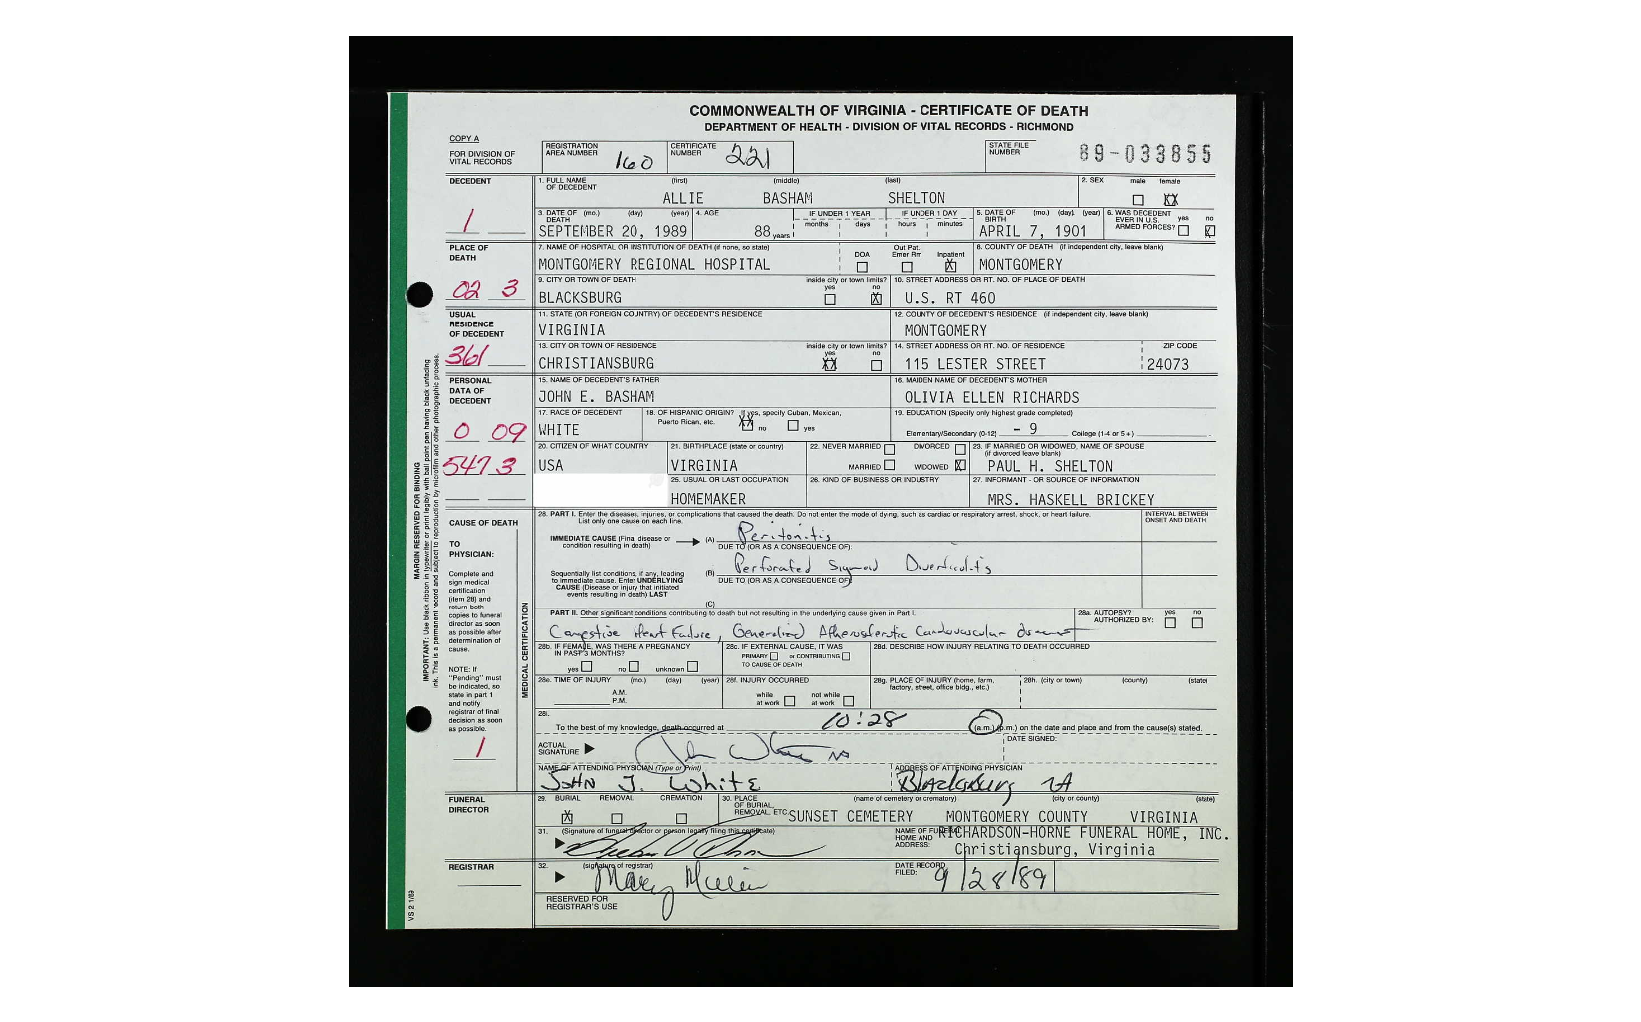 COMMONWEALTH OF VIRGINIA - CERTIFICATE OF DEATH
DEPARTMENT OF HEALTH - DIVISION OF VITAL RECORDS - RICHMOND
COPY A
FOR DIVISION OF VITAL RECORDS
REGISTRATION AREA NUMBER 160
CERTIFICATE NUMBER 221
STATE FILE NUMBER 89-033855
DECEDENT
1
1. FULL NAME OF DECEDENT (first) (middle) (last)
ALLIE BASHAM SHELTON
2. SEX male female
XX
3. DATE OF DEATH (mo.) (day) (year)
SEPTEMBER 20, 1989
4. AGE
88 years
IF UNDER 1 YEAR months days
IF UNDER 1 DAY hours minutes
5. DATE OF BIRTH (mo.) (day) (year)
APRIL 7, 1901
6. WAS DECEDENT EVER IN U.S. ARMED FORCES? yes no
X
PLACE OF DEATH
02 3
7. NAME OF HOSPITAL OR INSTITUTION OF DEATH (if none, so state)
MONTGOMERY REGIONAL HOSPITAL
DOA
Out Pat. Emer Rm
Inpatient
X
8. COUNTY OF DEATH (if independent city, leave blank)
MONTGOMERY
9. CITY OR TOWN OF DEATH
BLACKSBURG
inside city or town limits? yes no
X
10. STREET ADDRESS OR RT. NO. OF PLACE OF DEATH
U.S. RT 460
USUAL RESIDENCE OF DECEDENT
361
11. STATE (OR FOREIGN COUNTRY) OF DECEDENT'S RESIDENCE
VIRGINIA
12. COUNTY OF DECEDENT'S RESIDENCE (if independent city, leave blank)
MONTGOMERY
13. CITY OR TOWN OF RESIDENCE
CHRISTIANSBURG
inside city or town limits? yes no
XX
14. STREET ADDRESS OR RT. NO. OF RESIDENCE
115 LESTER STREET
ZIP CODE
24073
PERSONAL DATA OF DECEDENT
0 09
5473
15. NAME OF DECEDENT'S FATHER
JOHN E. BASHAM
16. MAIDEN NAME OF DECEDENT'S MOTHER
OLIVIA ELLEN RICHARDS
17. RACE OF DECEDENT
WHITE
18. OF HISPANIC ORIGIN? If yes, specify Cuban, Mexican, Puerto Rican, etc.
XX no yes
19. EDUCATION (Specify only highest grade completed)
Elementary/Secondary (0-12) - 9 College (1-4 or 5+)
20. CITIZEN OF WHAT COUNTRY
USA
21. BIRTHPLACE (state or country)
VIRGINIA
22. NEVER MARRIED DIVORCED
MARRIED WIDOWED X
23. IF MARRIED OR WIDOWED, NAME OF SPOUSE (if divorced leave blank)
PAUL H. SHELTON
25. USUAL OR LAST OCCUPATION
HOMEMAKER
26. KIND OF BUSINESS OR INDUSTRY
27. INFORMANT - OR SOURCE OF INFORMATION
MRS. HASKELL BRICKEY
MARGIN RESERVED FOR BINDING
IMPORTANT: Use black ribbon in typewriter or print legibly with ball point pen having black unfading ink. This is a permanent record and subject to reproduction by microfilm and other photographic process.
CAUSE OF DEATH
TO PHYSICIAN:
Complete and sign medical certification (item 28) and return both copies to funeral director as soon as possible after determination of cause.
NOTE: If "Pending" must be indicated, so state in part 1 and notify registrar of final decision as soon as possible.
1
MEDICAL CERTIFICATION
28. PART I. Enter the diseases, injuries, or complications that caused the death. Do not enter the mode of dying, such as cardiac or respiratory arrest, shock, or heart failure.
List only one cause on each line.
INTERVAL BETWEEN ONSET AND DEATH
IMMEDIATE CAUSE (Final disease or condition resulting in death)
(A) Peritonitis
DUE TO (OR AS A CONSEQUENCE OF):
Sequentially list conditions, if any, leading to immediate cause. Enter UNDERLYING CAUSE (Disease or injury that initiated events resulting in death) LAST
(B) Perforated Sigmoid Diverticulitis
DUE TO (OR AS A CONSEQUENCE OF)
(C)
PART II. Other significant conditions contributing to death but not resulting in the underlying cause given in Part I.
Congestive Heart Failure, Generalized Atherosclerotic Cardiovascular disease
28a. AUTOPSY? yes no
AUTHORIZED BY:
28b. IF FEMALE, WAS THERE A PREGNANCY IN PAST 3 MONTHS?
yes no unknown
28c. IF EXTERNAL CAUSE, IT WAS
PRIMARY or CONTRIBUTING
TO CAUSE OF DEATH
28d. DESCRIBE HOW INJURY RELATING TO DEATH OCCURRED
28e. TIME OF INJURY (mo.) (day) (year)
A.M.
P.M.
28f. INJURY OCCURRED
while at work not while at work
28g. PLACE OF INJURY (home, farm, factory, street, office bldg., etc.)
28h. (city or town) (county) (state)
28i.
To the best of my knowledge, death occurred at 10:28 (a.m.) (p.m.) on the date and place and from the cause(s) stated.
ACTUAL SIGNATURE
DATE SIGNED:
NAME OF ATTENDING PHYSICIAN (Type or Print)
JOHN J. White
ADDRESS OF ATTENDING PHYSICIAN
Blacksburg VA
FUNERAL DIRECTOR
29. BURIAL REMOVAL CREMATION
X
30. PLACE OF BURIAL, REMOVAL, ETC.
(name of cemetery or crematory) (city or county) (state)
SUNSET CEMETERY MONTGOMERY COUNTY VIRGINIA
31. (Signature of funeral director or person legally filing this certificate)
NAME OF FUNERAL HOME AND ADDRESS:
RICHARDSON-HORNE FUNERAL HOME, INC.
Christiansburg, Virginia
REGISTRAR
32. (signature of registrar)
DATE RECORD FILED: 9/28/89
RESERVED FOR REGISTRAR'S USE
VS 2 1/89